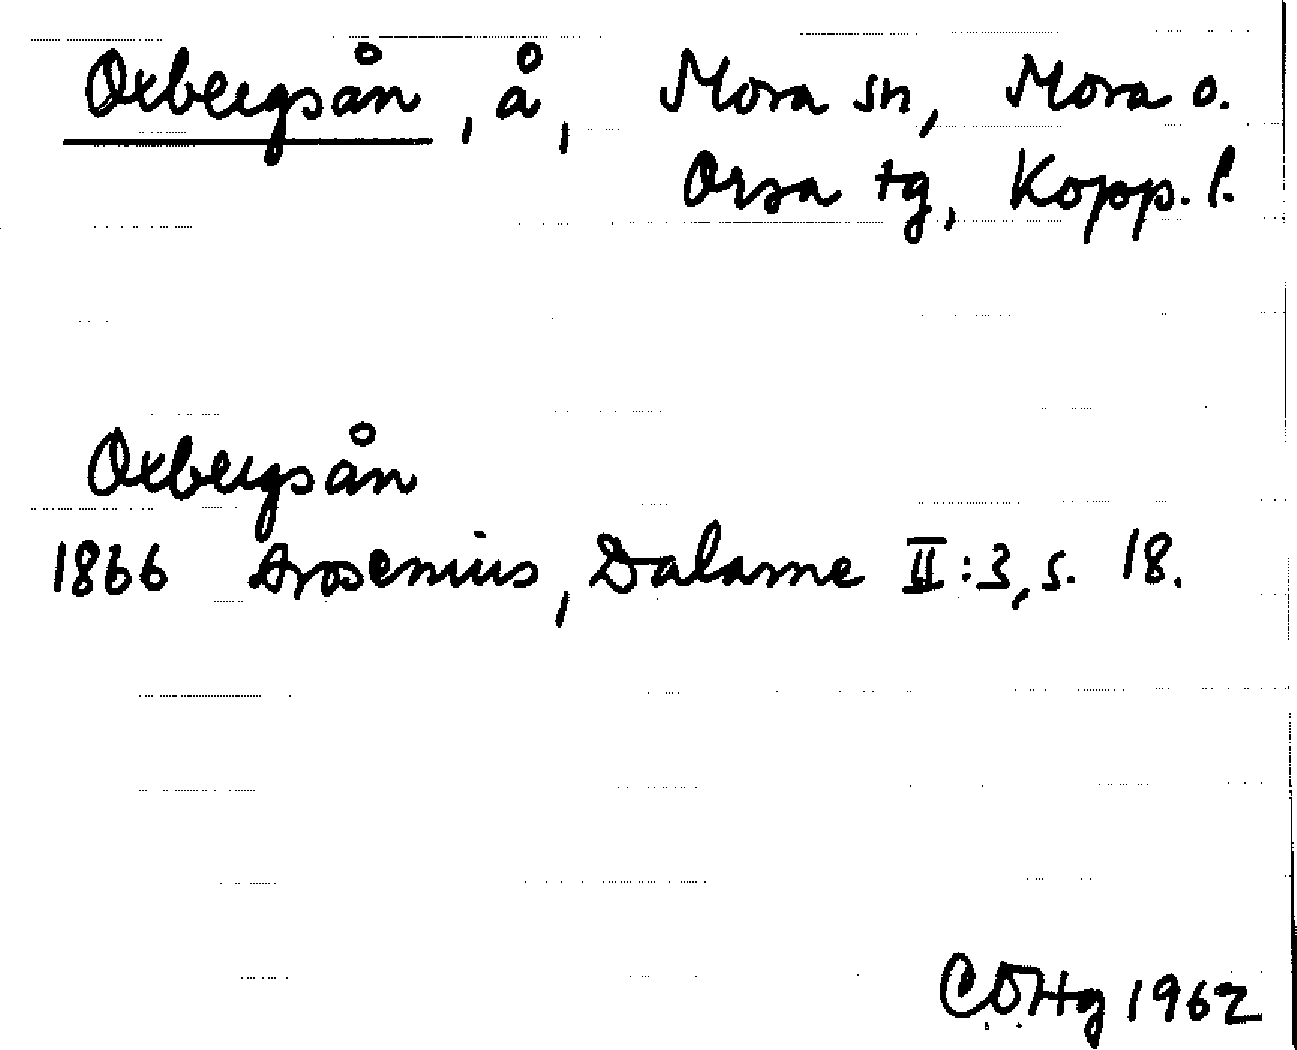 Oxbergsån, å, Mora sn, Mora o.
Orsa tg, Kopp. l.
Oxbergsån
1866 Arosenius, Dalarne II:3, s. 18.
CDHg 1962